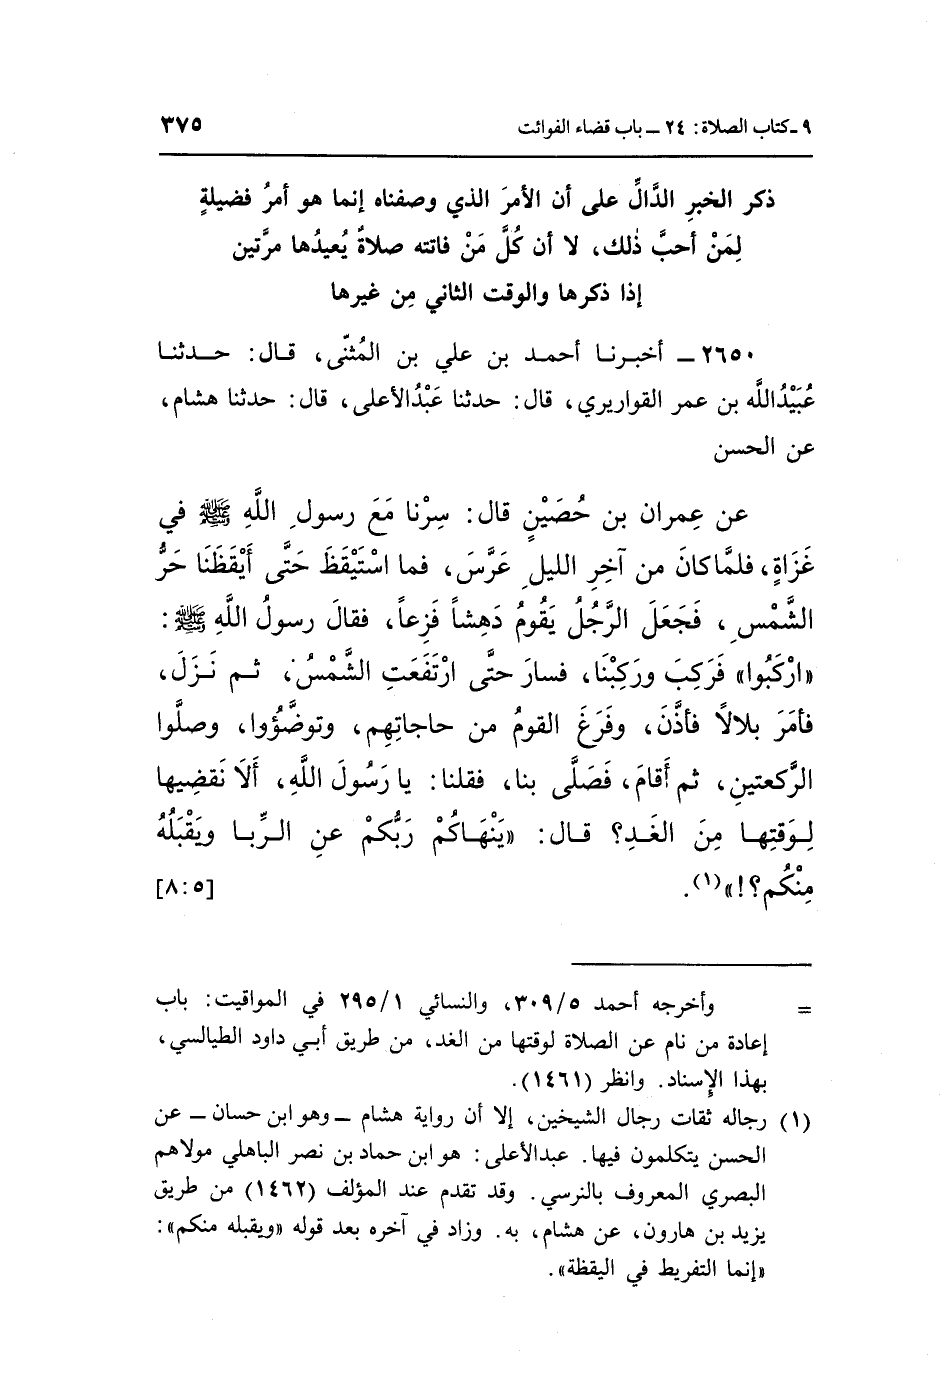 ٩ ـ كتاب الصلاة: ٢٤ ــ باب قضاء الفوائت ٣٧٥
ذكر الخبرِ الدَّالِّ على أن الأمرَ الذي وصفناه إنما هو أمرُ فضيلةٍ
لِمَنْ أحبَّ ذٰلك، لا أن كُلَّ مَنْ فاتته صلاةٌ يُعيدُها مرَّتين
إذا ذكرها والوقت الثاني مِن غيرها
٢٦٥٠ ــ أخبرنا أحمد بن علي بن المُثنّى، قال: حدثنا
عُبَيْدُاللَّه بن عمر القواريري، قال: حدثنا عَبْدُالأعلى، قال: حدثنا هشام،
عن الحسن
عن عِمران بن حُصَيْنٍ قال: سِرْنا مَعَ رسولِ اللَّهِ ﷺ في
غَزَاةٍ، فلمَّا كانَ من آخِرِ الليلِ عَرَّسَ، فما اسْتَيْقَظَ حَتَّى أَيْقَظَنَا حَرُّ
الشَّمْسِ، فَجَعَلَ الرَّجُلُ يَقُومُ دَهِشاً فَزِعاً، فقالَ رسولُ اللَّهِ ﷺ:
«ارْكَبُوا» فَرَكِبَ ورَكِبْنَا، فسارَ حتَّى ارْتَفَعَتِ الشَّمْسُ، ثم نَزَلَ،
فأمَرَ بلالاً فأذَّنَ، وفَرَغَ القومُ من حاجاتِهِم، وتوضَّؤُوا، وصلَّوا
الرَّكعتينِ، ثم أَقامَ، فَصَلَّى بنا، فقلنا: يا رَسُولَ اللَّهِ، أَلاَ نَقضِيها
لِوَقتِها مِنَ الغَدِ؟ قال: «يَنْهَاكُمْ رَبُّكمْ عنِ الرِّبا ويَقْبَلُهُ
مِنْكُم؟!»(١). [٨:٥]
= وأخرجه أحمد ٣٠٩/٥، والنسائي ٢٩٥/١ في المواقيت: باب
إعادة من نام عن الصلاة لوقتها من الغد، من طريق أبي داود الطيالسي،
بهذا الإسناد. وانظر (١٤٦١).
(١) رجاله ثقات رجال الشيخين، إلا أن رواية هشام ــ وهو ابن حسان ــ عن
الحسن يتكلمون فيها. عبدالأعلى: هو ابن حماد بن نصر الباهلي مولاهم
البصري المعروف بالنرسي. وقد تقدم عند المؤلف (١٤٦٢) من طريق
يزيد بن هارون، عن هشام، به. وزاد في آخره بعد قوله «ويقبله منكم»:
«إنما التفريط في اليقظة».